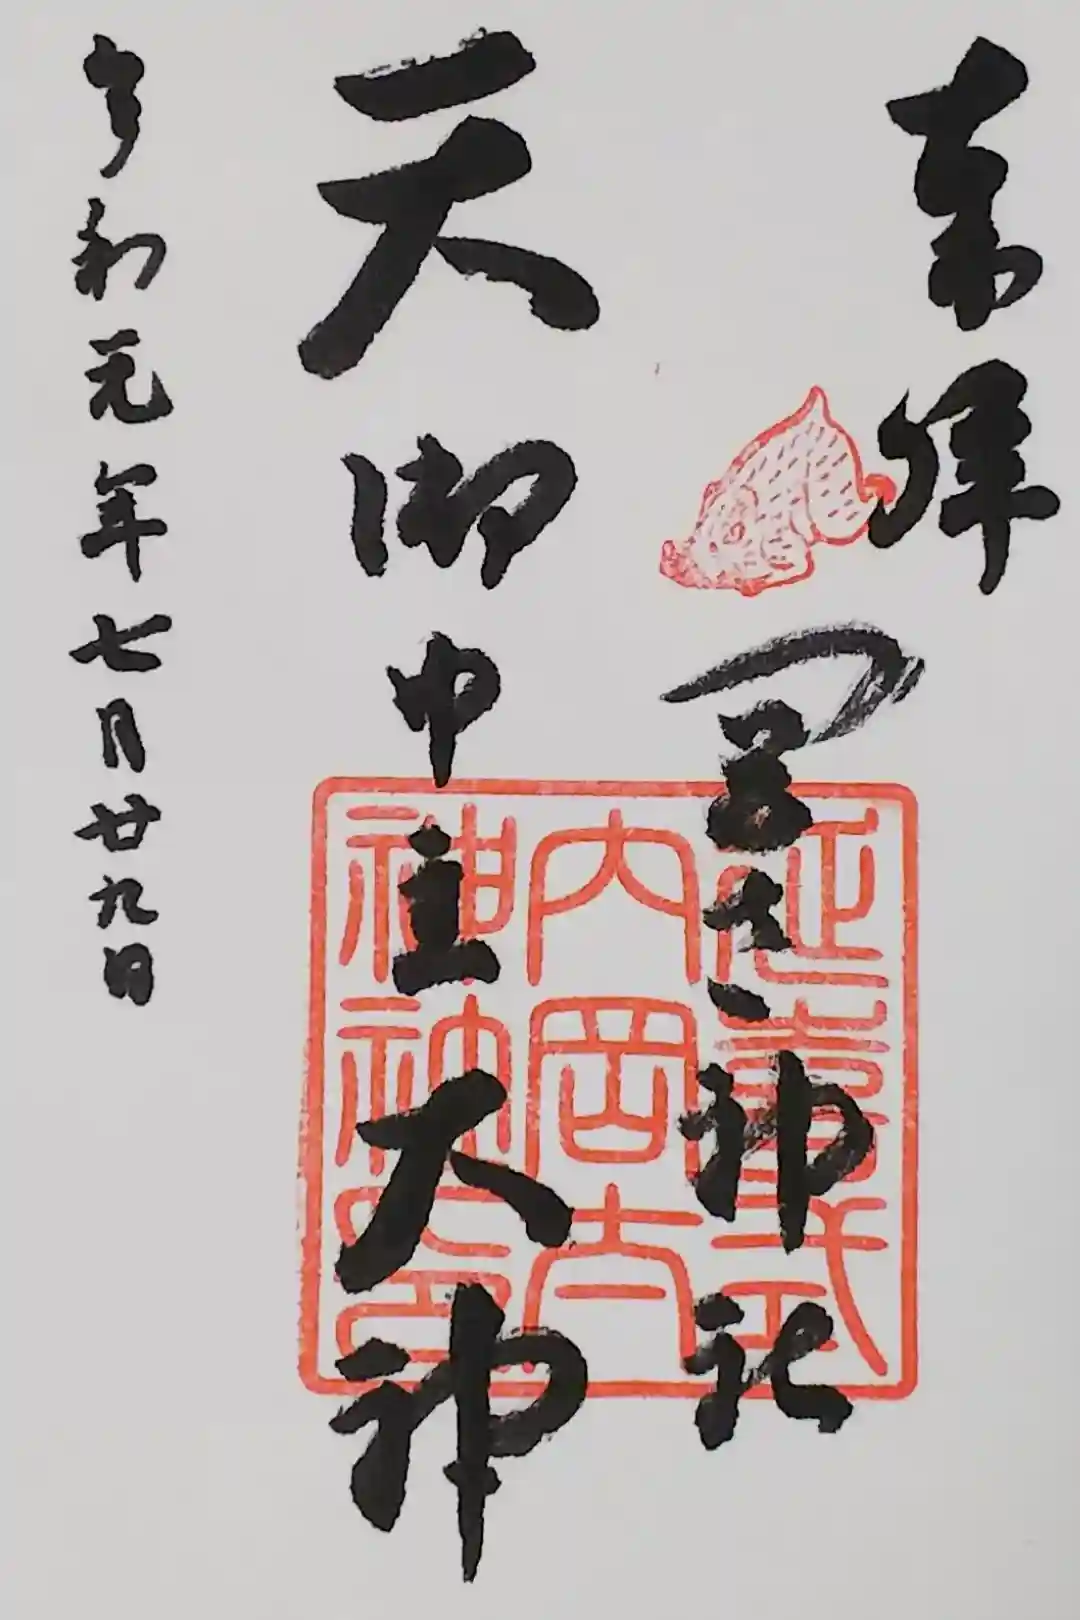 奉拝
岡太神社
天御中主大神
令和元年七月廿九日
延喜式
内岡太
神社之印